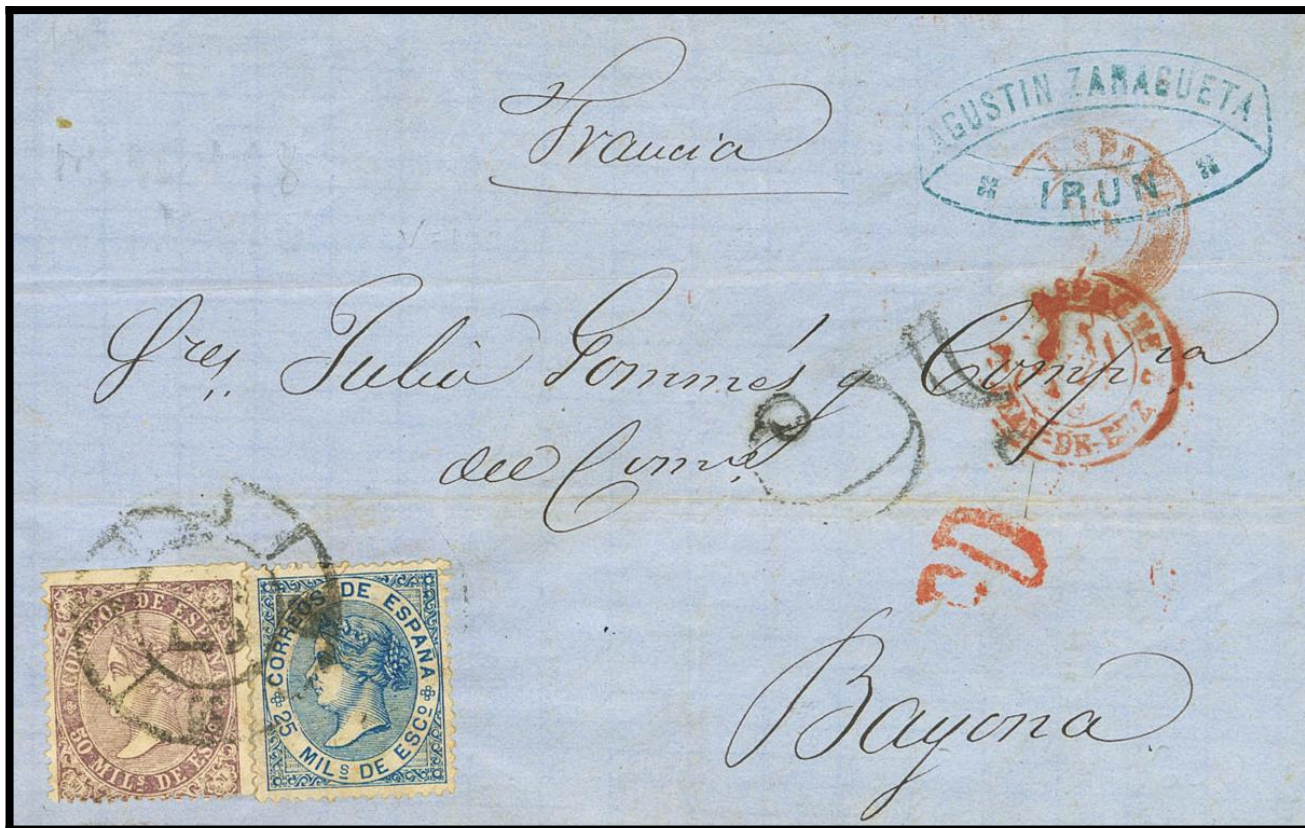 Francia
AGUSTIN ZARAGUETA
IRUN
Sres. Julia Gommés y Compra
del Comº
Bayona
PD
CORREOS DE ESPAÑA
50 MILS DE ESCO
CORREOS DE ESPAÑA
25 MILS DE ESCO